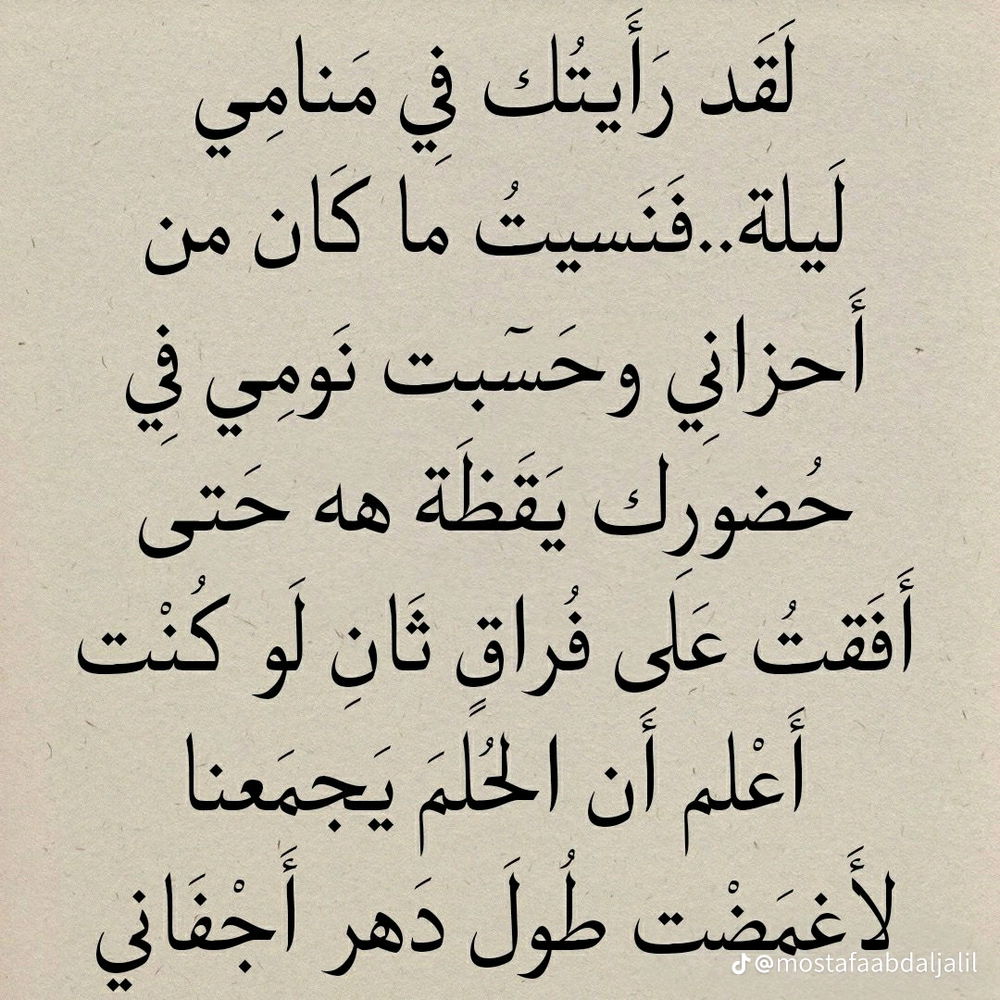 لَقَد رَأَيتُك فِي مَنامِي
لَيلة..فَنَسيتُ ما كَان من
أَحزانِي وحَسٓبت نَومِي فِي
حُضورِك يَقَظَة هه حَتى
أَفَقتُ عَلَى فُراقٍ ثَانِ لَو كُنْت
أَعْلم أَن الحُلمَ يَجمَعنا
لأَغمَضْت طُولَ دَهر أَجْفَاني
@mostafaabdaljalil